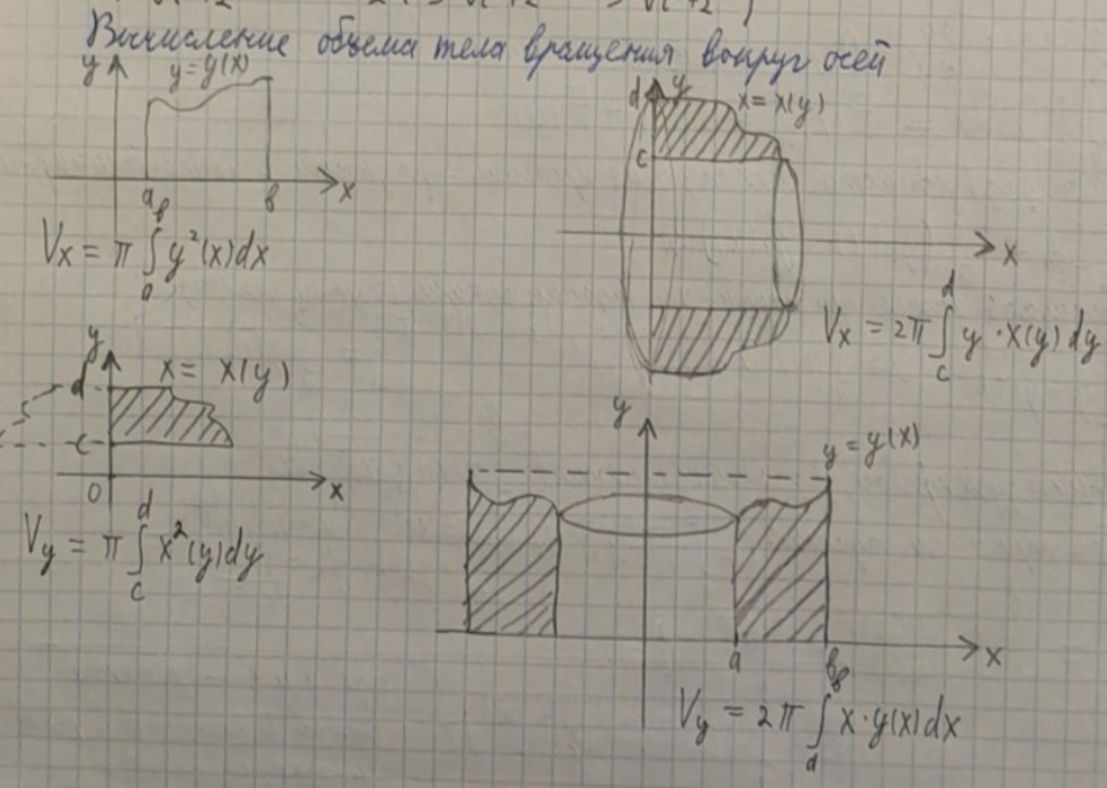 Вычисление объема тела вращения вокруг осей
y
y=y(x)
a
b
x
Vx = π ∫ₐᵇ y²(x)dx
d
y
x=x(y)
c
x
Vx = 2π ∫ y·x(y)dy
d
c
y
d
x= x(y)
c
0
x
Vy = π ∫ x²(y)dy
d
c
y
y=y(x)
a
b
x
Vy = 2π ∫ x·y(x)dx
b
d